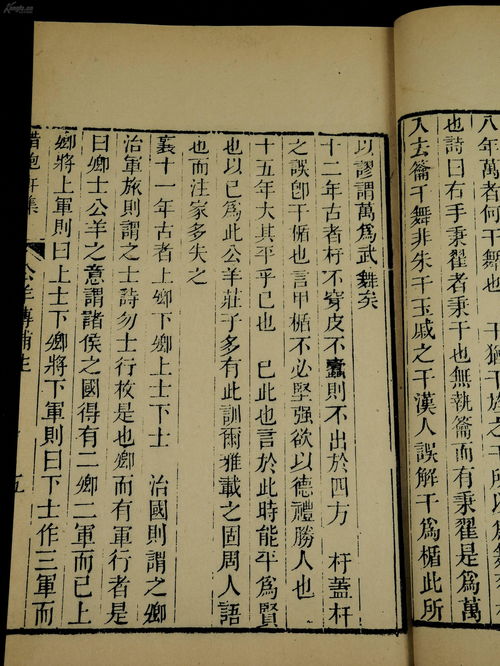 八年萬者何干舞也　干
也詩曰右手秉翟者秉干也無執籥而有秉翟是爲萬
入去籥干舞非朱干玉戚之干漢人誤解干爲楯此所
以謬謂萬爲武舞矣
十二年古者杅不穿皮不蠹則不出於四方　杅蓋杆
之誤卽干楯也言甲楯不必堅强欲以德禮勝人也
十五年大其平乎已也　已此也言於此時能平爲賢
也以已爲此公羊莊子多有此訓爾雅載之固周人語
也而注家多失之
襄十一年古者上卿下卿上士下士　治國則謂之卿
治軍旅則謂之士詩勿士行枚是也卿而有軍行者是
曰卿士公羊之意謂諸侯之國得有二卿二軍而已上
卿將上軍則曰上士下卿將下軍則曰下士作三軍而
惜抱軒集　公羊傳補注　五